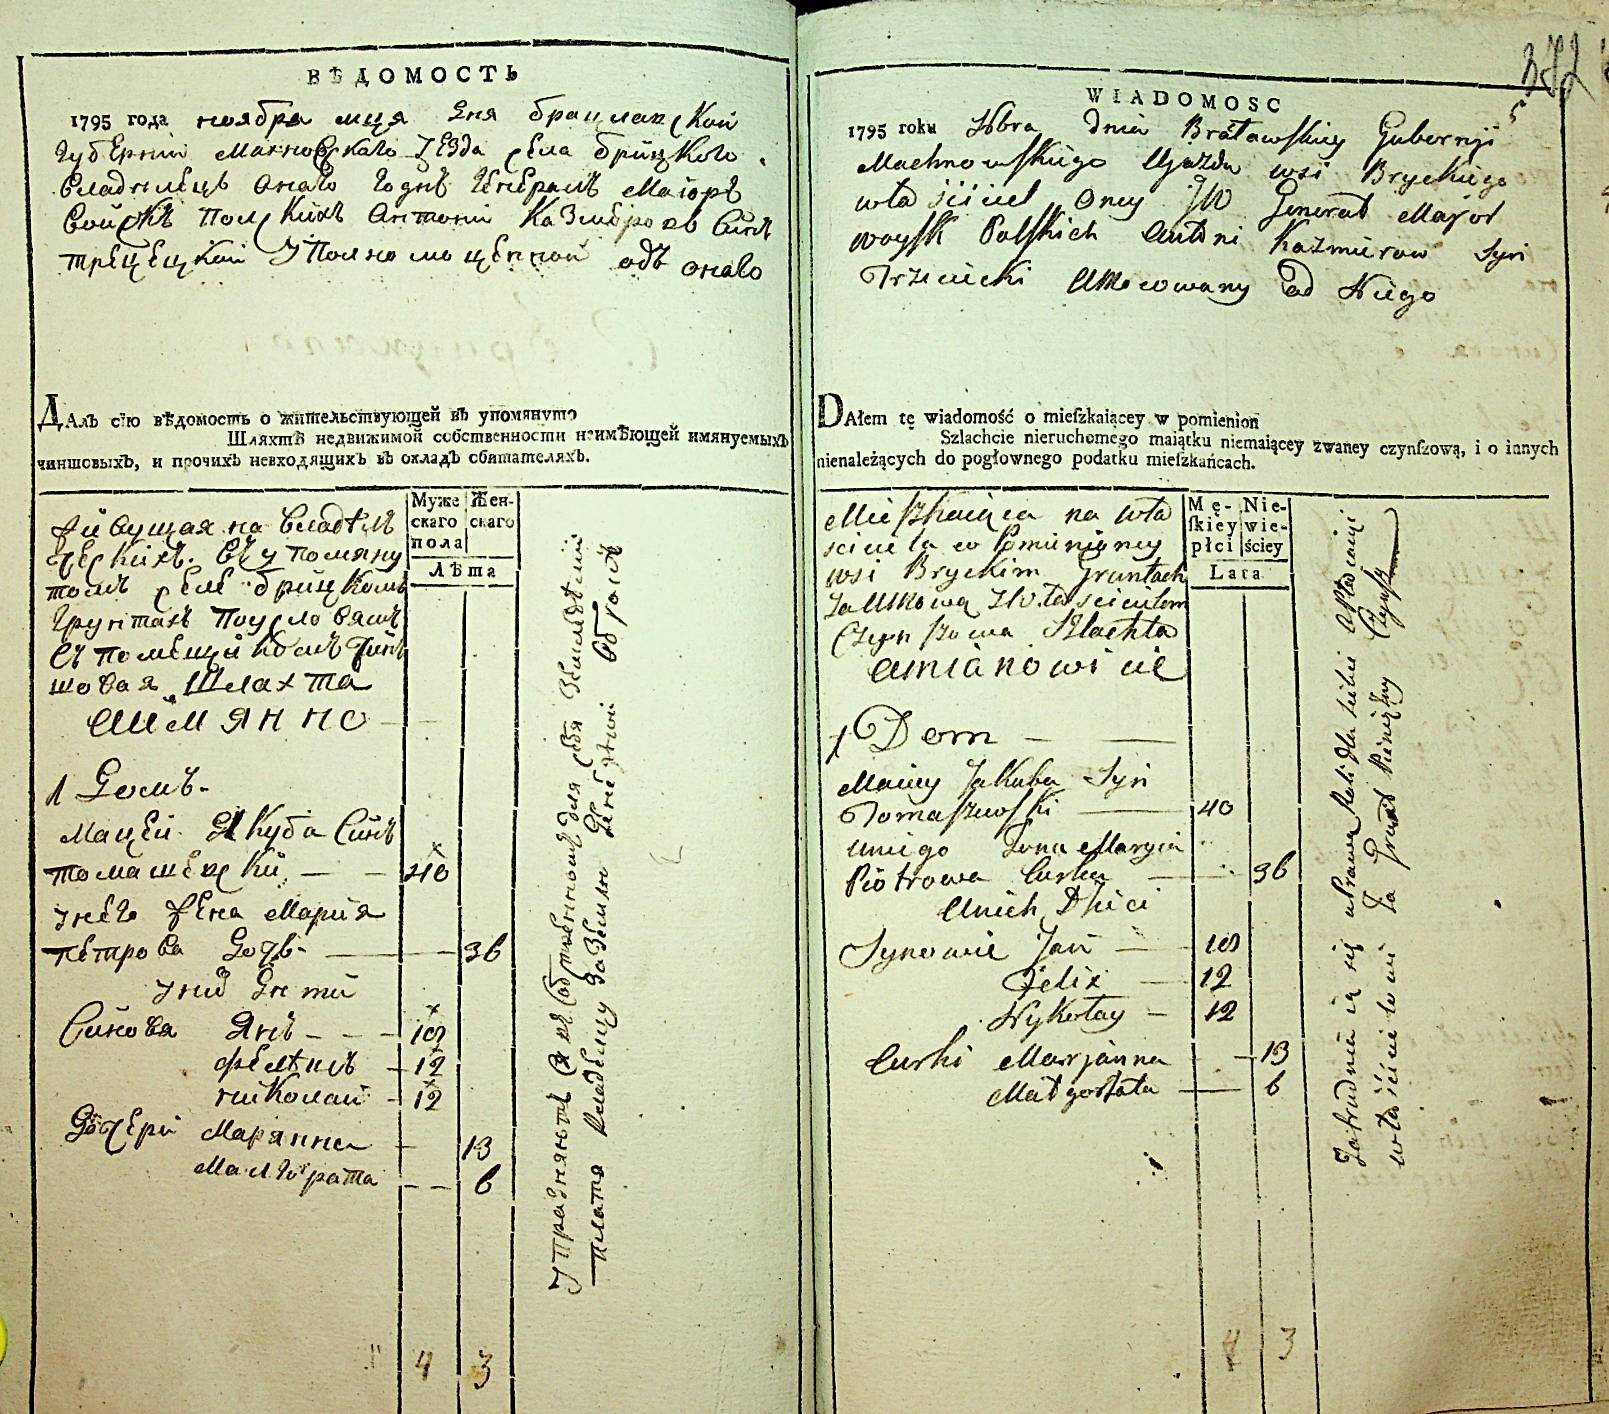 ВѢДОМОСТЬ
1795 года ноября мця Дня брацлавской
Губерніи Махновскаго уезда села брицкого
владѣлецъ онаго годнъ Генералъ Маіоръ
войскъ Полскихъ Антоній Казмѣровъ синъ
трецецкой одъ онаго
ДАлъ сїю вѣдомость о жительствующей въ упомянуто
Шляхтѣ недвижимой собственности неимѣющей имянуемыхъ
чиншовыхъ, и прочихъ невходящихъ въ окладъ обитателяхъ.
Муже скаго пола
Жен- скаго
Лѣта
живущая на владѣль
ческихъ въ упомяну
томъ селе брицкомъ
грунтахъ
съ помещикомъ Чин
шовая Шляхта
аимянно
1 Домъ
Мацей Якуба Синъ
томашевский 40
унего жена Мария
петрова дочь 36
унихъ Дети
Синовя Янъ 10
феликсъ 12
николай 12
Дочери Марянна 13
Малгората 6
4 3
упражняются для себя
платя владелцу за землю
372
5
WIADOMOSC
1795 roku Nbra dnia Bracławskiey Gubernji
Machnowskiego Ujazdu wsi Bryckiego
własciciel oney JW Generał Major
woysk Polskich Antoni Kazmierow Syn
Trzeciecki Umocowany od Niego
DAłem tę wiadomość o mieſzkaiącey w pomienion
Szlachcie nieruchomego maiątku niemaiącey zwaney czynſzową, i o innych
nienależących do pogłownego podatku mieſzkańcach.
Mę- ſkiey płci
Nie- wie- ściey
Lata
Mieszkaiąca na wła
sciciela w Pomienioney
wsi Bryckim Gruntach
za Umową z włascicielem
Czynszowa Szlachta
amianowicie
1 Dom
Maciey Jakuba Syn
Tomaszewski 40
uniego Zona Maryia
Piotrowa Curka 36
Unich Dzieci
Synowie Jan 10
Felix 12
Nykołay 12
Curki Marjanna 13
Małgorzata 6
4 3
Zatrudniaią się uprawą Roli dla siebie
właścicielowi za Grunt Pieniężny Czynsz